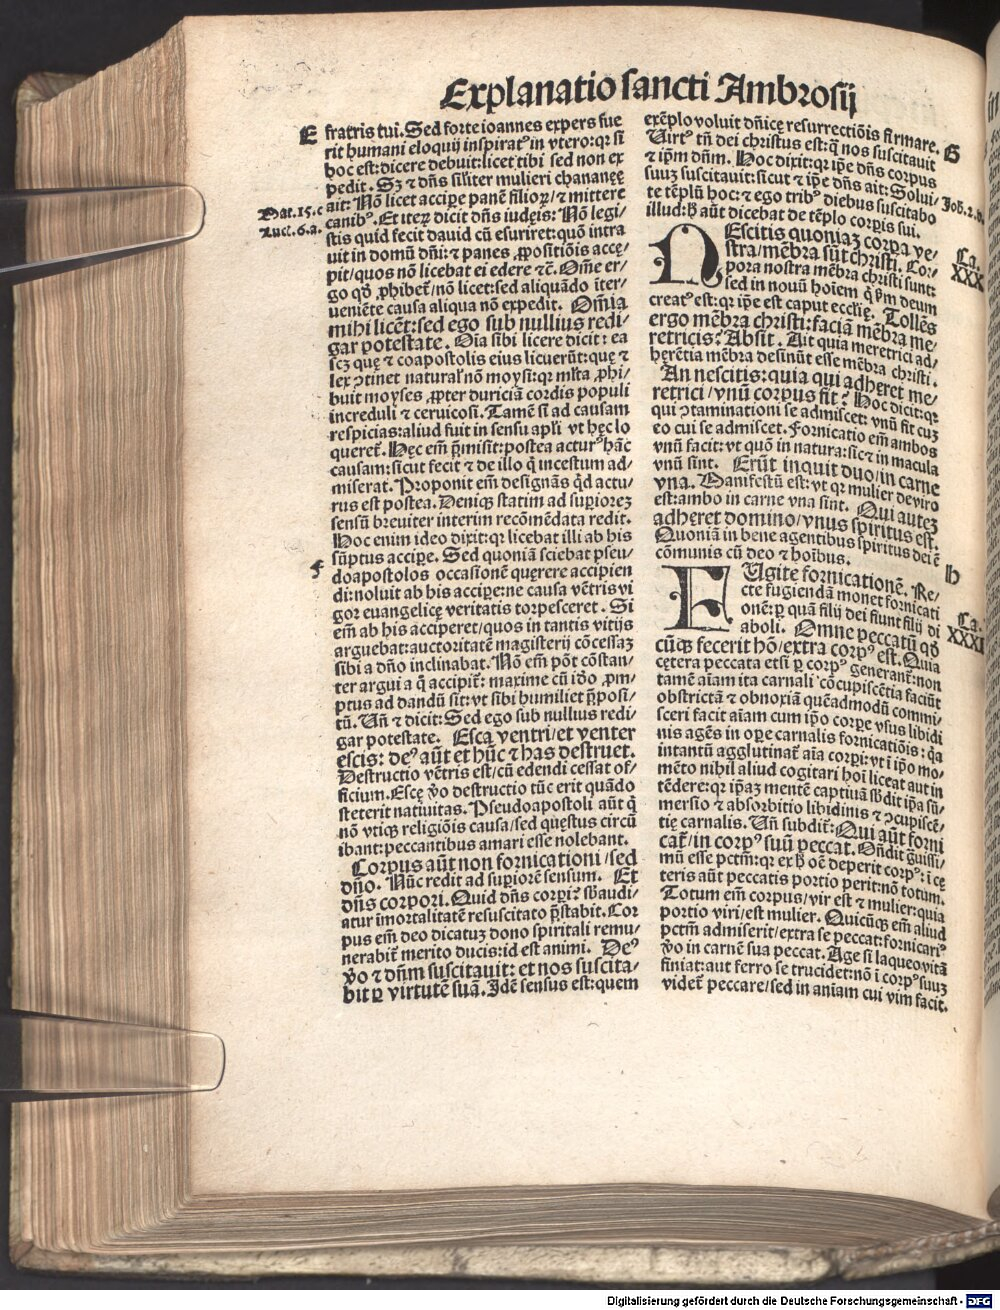 Explanatio sancti Ambrosij
E
fratris tui. Sed forte ioannes expers fue
rit humani eloquij inspiratꝰ in vtero: qr si
hoc est: dicere debuit: licet tibi sed non ex
pedit. Sꝫ ⁊ dñs siliter mulieri chananęę
Mat. 15. c
ait: Nõ licet accipe panẽ filioꝝ/ ⁊ mittere
Luc. 6. a.
canibꝰ. Et iteꝝ dicit dñs iudęis: Nõ legi/
stis quid fecit dauid cũ esuriret: quõ intra
uit in domũ dñi: ⁊ panes ꝓpositiõis accę/
pit/ quos nõ licebat ei edere ⁊c̃. Om̃e er/
go qđ ꝓhibet̃/ nõ licet: sed aliquãdo iter/
ueniẽte causa aliqua nõ expedit. Om̃ia
mihi licẽt: sed ego sub nullius redi/
gar potestate. Oĩa sibi licere dicit: ea
scꝫ quę ⁊ coapostolis eius licuerũt: quę ⁊
lex ꝯtinet natural̃ nõ moysi: qr ml̃ta ꝓhi/
buit moyses ꝓpter duriciã cordis populi
increduli ⁊ ceruicosi. Tamẽ si ad causam
respicias: aliud fuit in sensu apl̃i vt hęc lo
queret̃. Hęc em̃ p̃misit: postea acturꝰ hãc
causam: sicut fecit ⁊ de illo q̃ incestum ad/
miserat. Proponit em̃ designãs qđ actu/
rus est postea. Deniqꝫ statim ad supioreꝫ
sensũ breuiter interim recõmẽdata redit.
Hoc enim ideo dixit: qr licebat illi ab his
F
sũptus accipe. Sed quoniã sciebat pseu/
doapostolos occasionẽ quęrere accipien
di: noluit ab his accipe: ne causa vẽtris vi
gor euangelicę veritatis torpesceret. Si
em̃ ab his acciperet/ quos in tantis vitijs
arguebat: auctoritatẽ magisterij cõcessaꝫ
sibi a dño inclinabat. Nõ em̃ põt cõstan/
ter argui a q̃ accipit̃: maxime cũ iđo ꝓm/
ptus ad dandũ sit: vt sibi humiliet p̃posi/
tũ. Uñ ⁊ dicit: Sed ego sub nullius redi/
gar potestate. Esca ventri/ et venter
escis: deꝰ aũt et hũc ⁊ has destruet.
Destructio vẽtris est/ cũ edendi cessat of/
ficium. Escę ṽo destructio tũc erit quãdo
steterit natiuitas. Pseudoapostoli aũt q̃
nõ vtiqꝫ religiõis causa/ sed quęstus circũ
ibant: peccantibus amari esse nolebant.
Corpus aũt non fornicationi/ sed
dño. Nũc redit ad supiorẽ sensum. Et
dñs corpori. Quid dñs corpi? s̃baudi/
atur ĩmortalitatẽ resuscitato p̃stabit. Cor
pus em̃ deo dicatuꝫ dono spiritali remu/
nerabit̃ merito ducis: id est animi. Deꝰ
ṽo ⁊ dñm suscitauit: et nos suscita/
bit ꝑ virtutẽ suã. Idẽ sensus est: quem
exẽplo voluit dñicę resurrectiõis firmare.
G
Uirtꝰ tñ dei christus est: q̃ nos suscitauit
⁊ ip̃m dñm. Hoc dixit: qr ipe dñs corpus
suuꝫ suscitauit: sicut ⁊ ipe dñs ait: Solui/
Joh. 2. d.
te tẽplũ hoc: ⁊ ego tribꝰ diebus suscitabo
illud: h̃ aũt dicebat de tẽplo corpis sui.
Ca.
XXX
NEscitis quoniaꝫ corpa ve/
stra/ mẽbra sũt christi. Cor/
pora nostra mẽbra christi sunt:
sed in nouũ hoiem q̃ ẜm deum
creatꝰ est: qr ipe est caput ecclię. Tollẽs
ergo mẽbra christi: faciã mẽbra me/
retricis? Absit. Ait quia meretrici ad/
hęrẽtia mẽbra desinũt esse mẽbra christi.
An nescitis: quia qui adheret me/
retrici/ vnũ corpus fit? Hoc dicit: qr
qui ꝯtaminationi se admiscet: vnũ fit cuꝫ
eo cui se admiscet. Fornicatio em̃ ambos
vnũ facit: vt quõ in natura: sic ⁊ in macula
vnũ sint. Erũt inquit duo/ in carne
vna. Manifestũ est: vt qr mulier de viro
est: ambo in carne vna sint. Qui auteꝫ
adheret domino/ vnus spiritus est.
Quoniã in bene agentibus spiritus dei ẽ
cõmunis cũ deo ⁊ hoĩbus.
H
Ca.
XXXI
FUgite fornicationẽ. Re/
cte fugiendam monet fornicati
onẽ: ꝑ quã filij dei fiunt filij di
aboli. Omne peccatũ qđ
cũqꝫ fecerit hõ/ extra corpꝰ est. Quia
cętera peccata etsi ꝑ corpꝰ generant̃: non
tamẽ aĩam ita carnali cõcupiscẽtia faciũt
obstrictã ⁊ obnoxiã quẽadmodũ commi/
sceri facit aĩam cum ip̃o corpe vsus libidi
nis agẽs in ope carnalis fornicatiõis: q̃a
intantũ agglutinat̃ aĩa corpi: vt ĩ ip̃o mo/
mẽto nihil aliud cogitari hoĩ liceat aut in
tẽdere: qr ip̃aꝫ mentẽ captiuã s̃bdit ip̃a sũ/
mersio ⁊ absorbitio libidinis ⁊ ꝯcupiscẽ/
tię carnalis. Uñ subdit̃: Qui aũt forni
cat̃/ in corpꝰ suũ peccat. Oñdit g̃uissi/
mũ esse pctm̃: qr ex h̃ oẽ deperit corpꝰ: ĩ cę
teris aũt peccatis portio perit: nõ totum.
Totum em̃ corpus/ vir est ⁊ mulier: quia
portio viri/ est mulier. Quicũqꝫ em̃ aliud
pctm̃ admiserit/ extra se peccat: fornicariꝰ
ṽo in carnẽ sua peccat. Age si laqueo vitã
finiat: aut ferro se trucidet: nõ ĩ corpꝰ suuꝫ
videt̃ peccare/ sed in aniam cui vim facit.
Digitalisierung gefördert durch die Deutsche Forschungsgemeinschaft - DFG